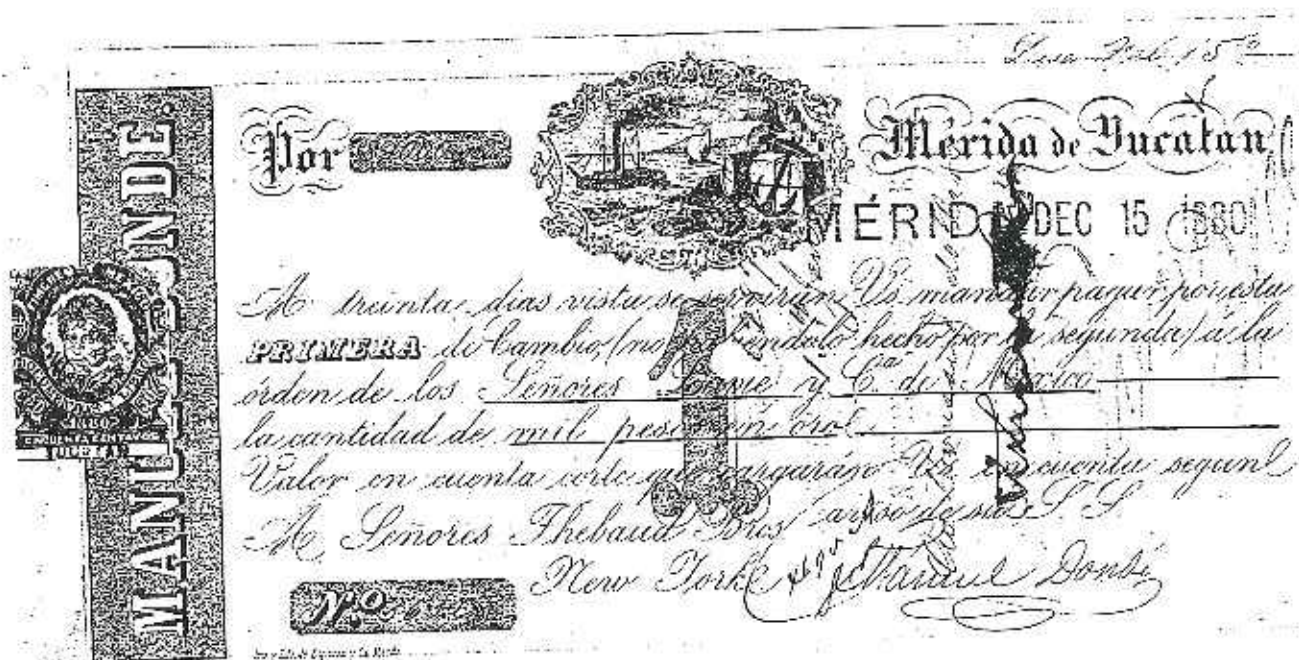 MANUEL DONDE.
Por
Mérida de Yucatan
MÉRIDA DEC 15 1880
A treinta dias vista se serviran Vs. mandar pagar por esta
PRIMERA de Cambio, (no habiéndolo hecho por la segunda) á la
órden de los Señores y Cª de México
la cantidad de mil pesos en oro
Valor en cuenta corte que cargarán Vs. en cuenta segun
aviso de su S. S.
A Señores Thebaud Bros
New York
Manuel Dondé
N.º
1880
CINCUENTA CENTAVOS